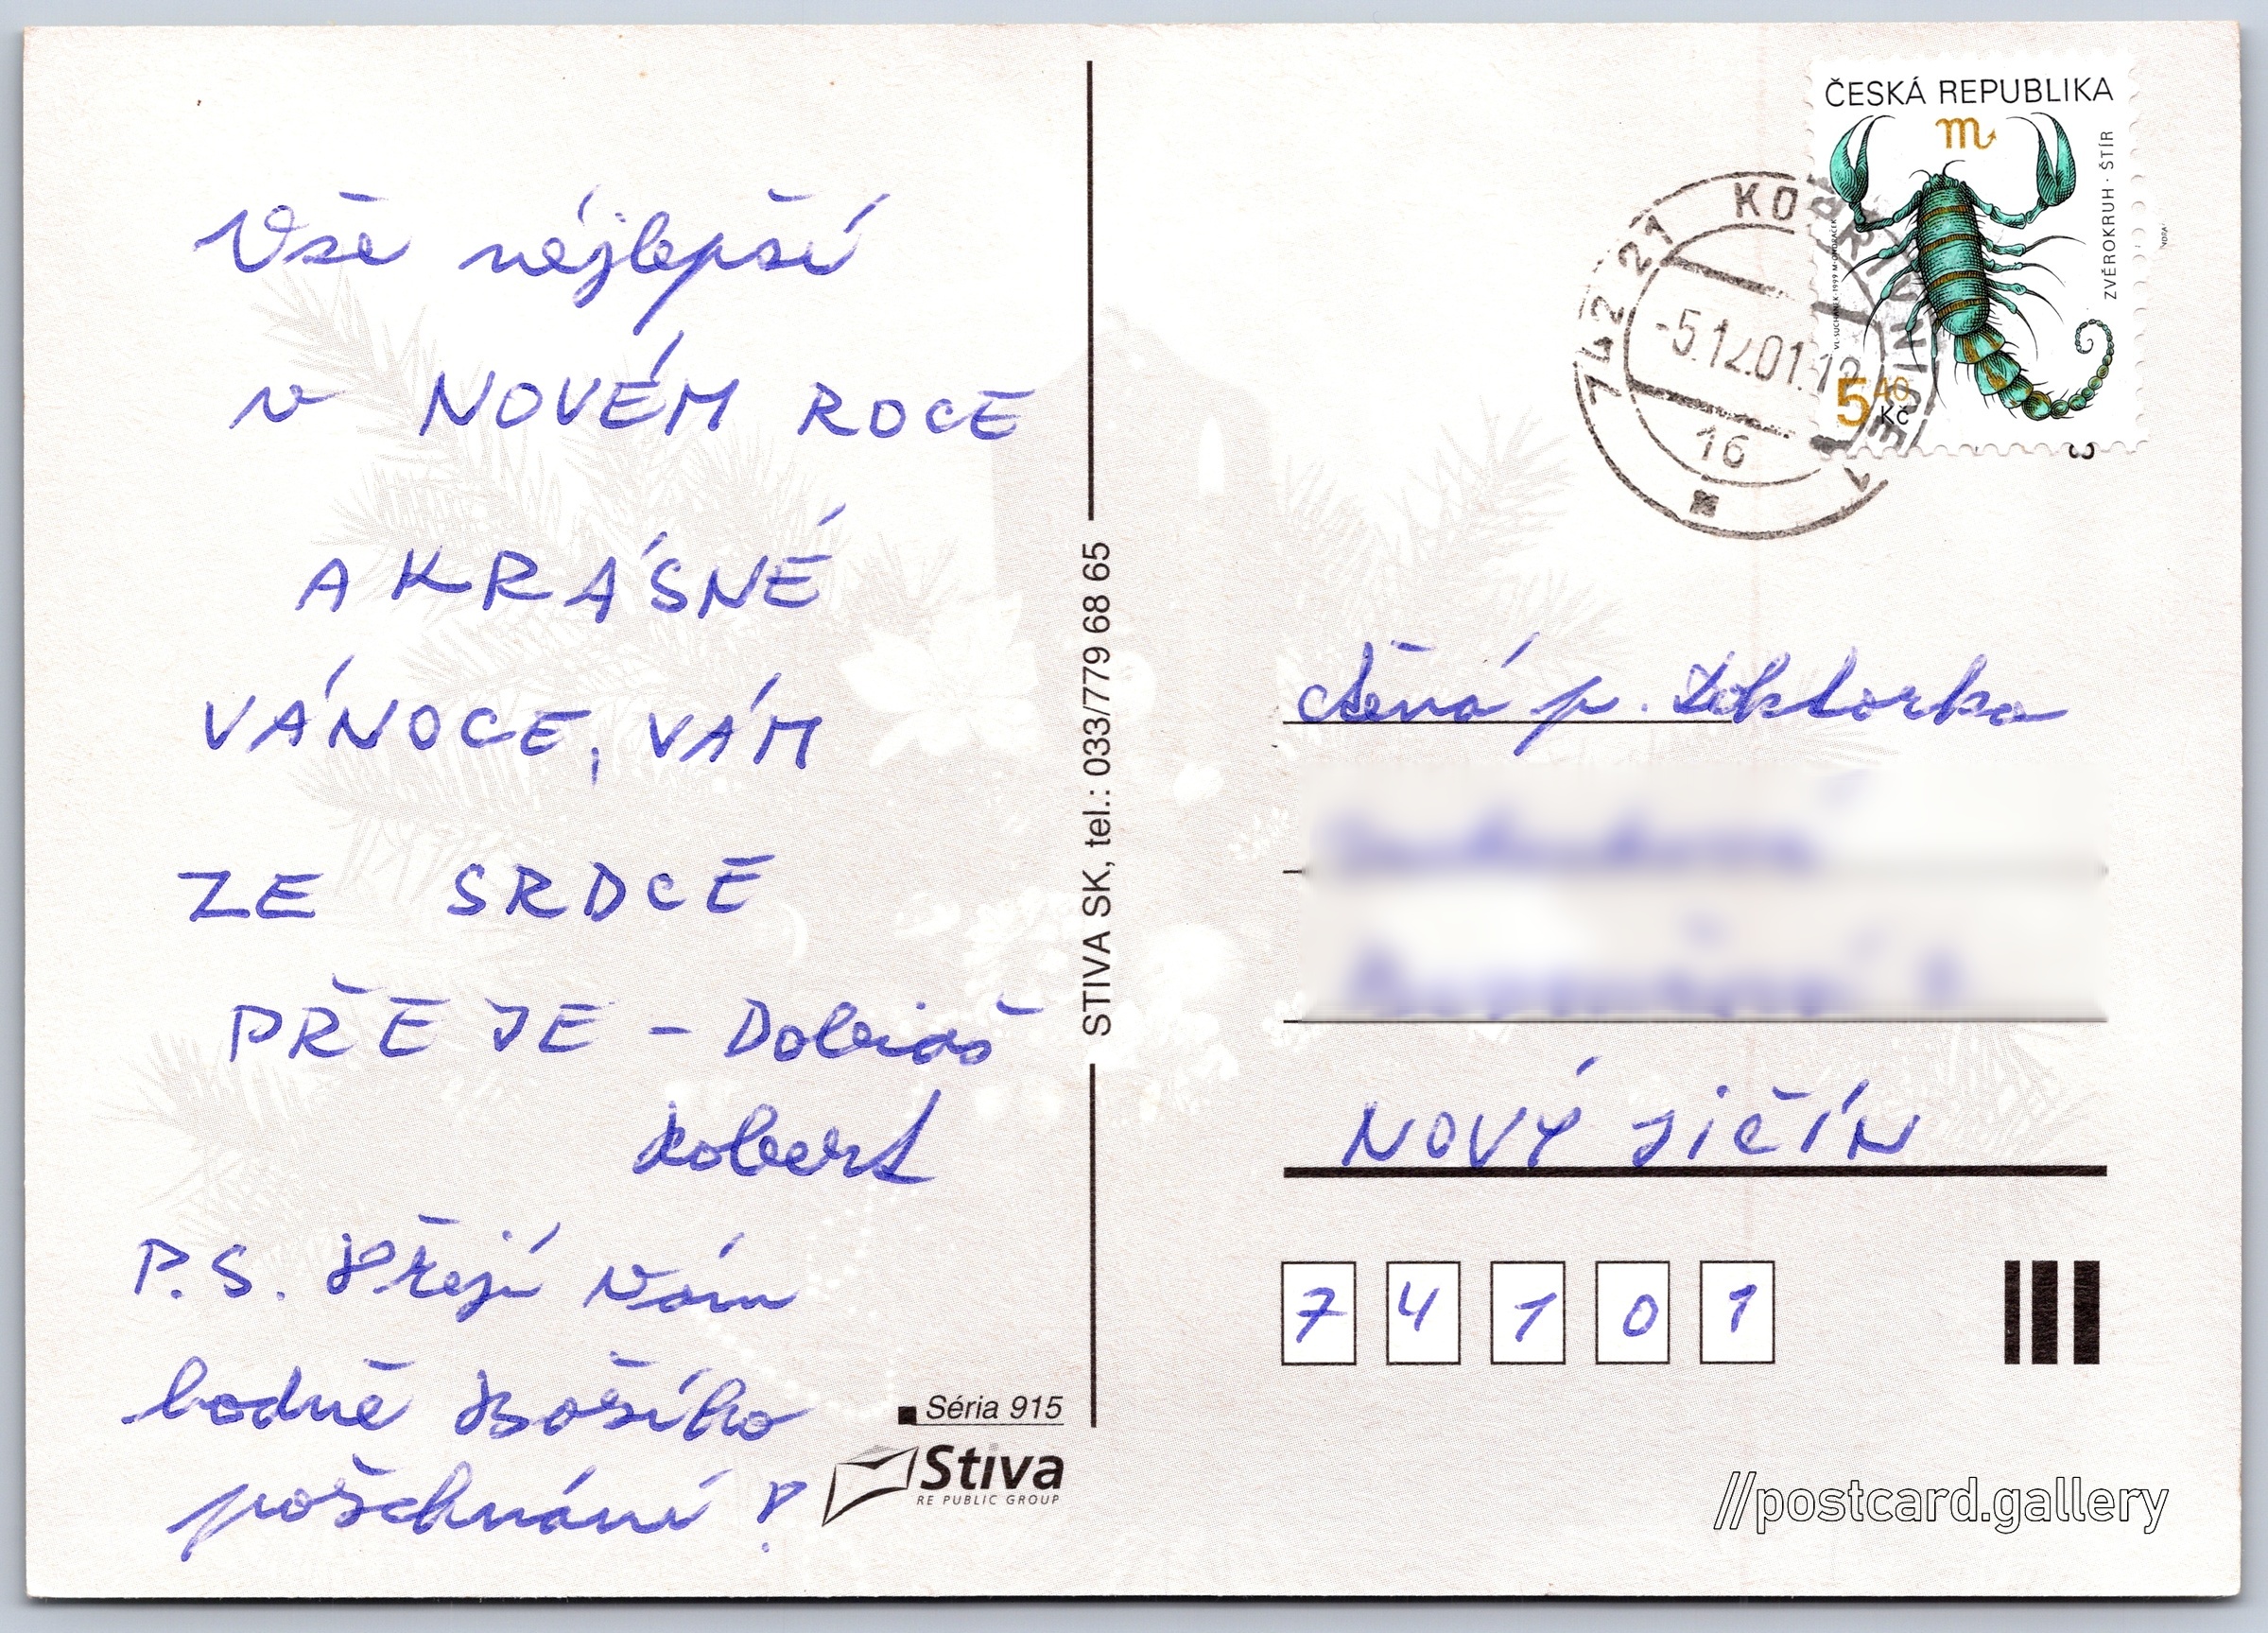 Vše nejlepší
v NOVÉM ROCE
A KRÁSNÉ
VÁNOCE, VÁM
ZE SRDCE
PŘEJE – Dobiáš
Robert
P.S. Přeji Vám
hodně Božího
požehnání!
Séria 915
Stiva
RE PUBLIC GROUP
STIVA SK, tel.: 033/779 68 65
ČESKÁ REPUBLIKA
ZVĚROKRUH · ŠTÍR
5 40
Kč
742 21 KOPŘIVNICE 1
-5.12.01.
16
ctěná p. doktorka
NOVÝ JIČÍN
7 4 1 0 1
//postcard.gallery